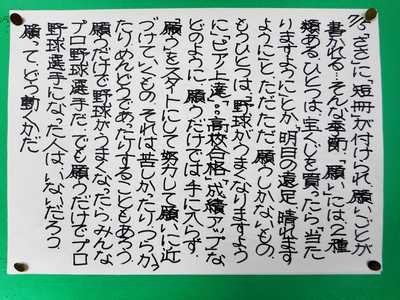 7/5「ささ」に「短冊」が付けられ、願いごとが
書かれる…そんな季節。「願い」には、2種
類ある。ひとつは、宝くじを買ったら「当た
りますように」とか、「明日の遠足、晴れます
ように」と、ただただ、願うしかないもの。
もうひとつは、「野球がうまくなりますよう
に」「ピアノ上達」「高校合格」「成績アップ」な
どのように、願うだけでは手に入らず、
「願う」をスタートにして努力して願いに近
づけていくもの。それは苦しかったり、つらか
たり、めんどうであったりすることもあろう。
願うだけで野球がうまくなったら、みんな
プロ野球選手だ。でも願うだけでプロ
野球選手になった人はいないだろう。
願って、どう動くかだ。